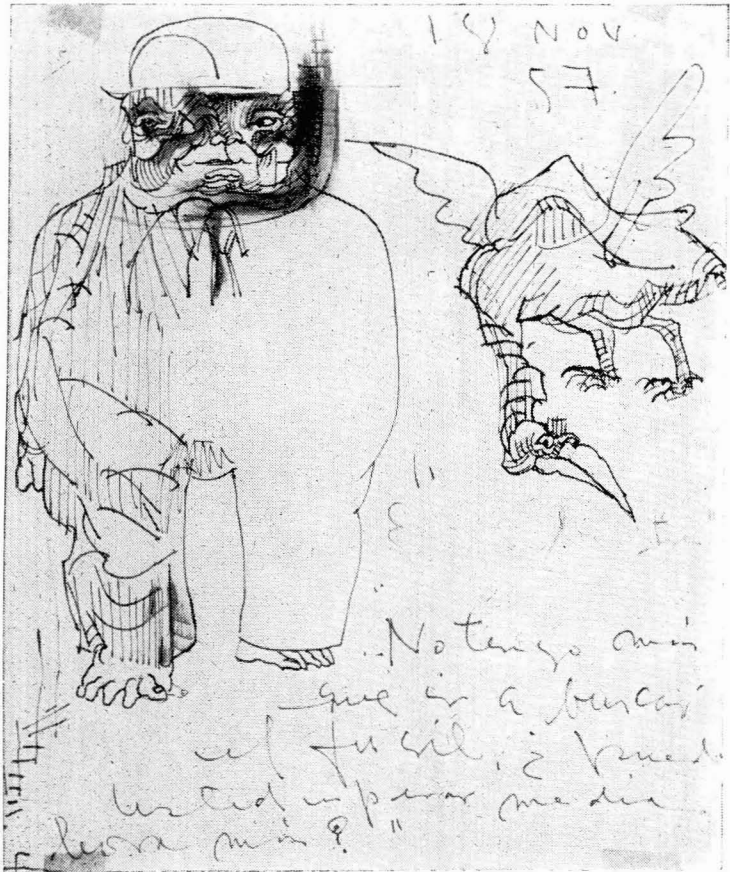 18 NOV
57.
"No tengo más
que ir a buscar
el fusil, ¿ puede
usted esperar media
hora más? "